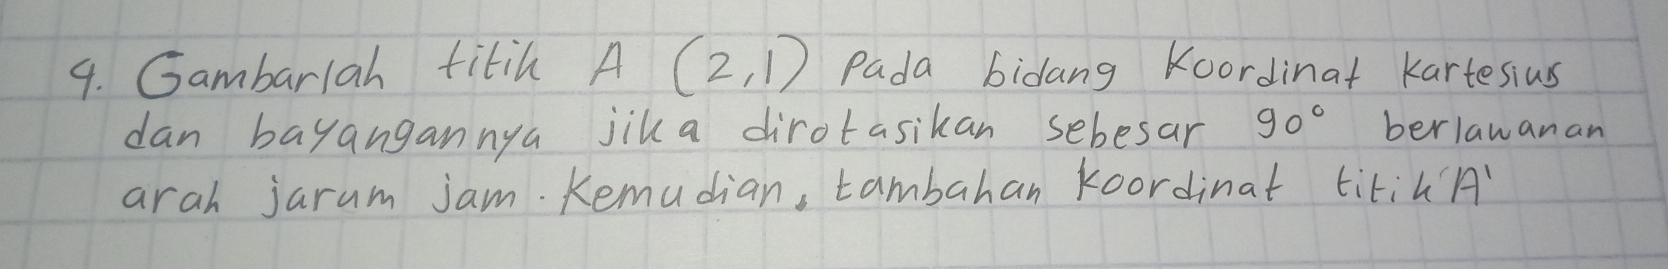 4. Gambarlah titik A (2,1) Pada bidang Koordinat kartesius
dan bayangannya jika dirotasikan sebesar 90° berlawanan
arah jarum jam. Kemudian, tambahan koordinat titik A'